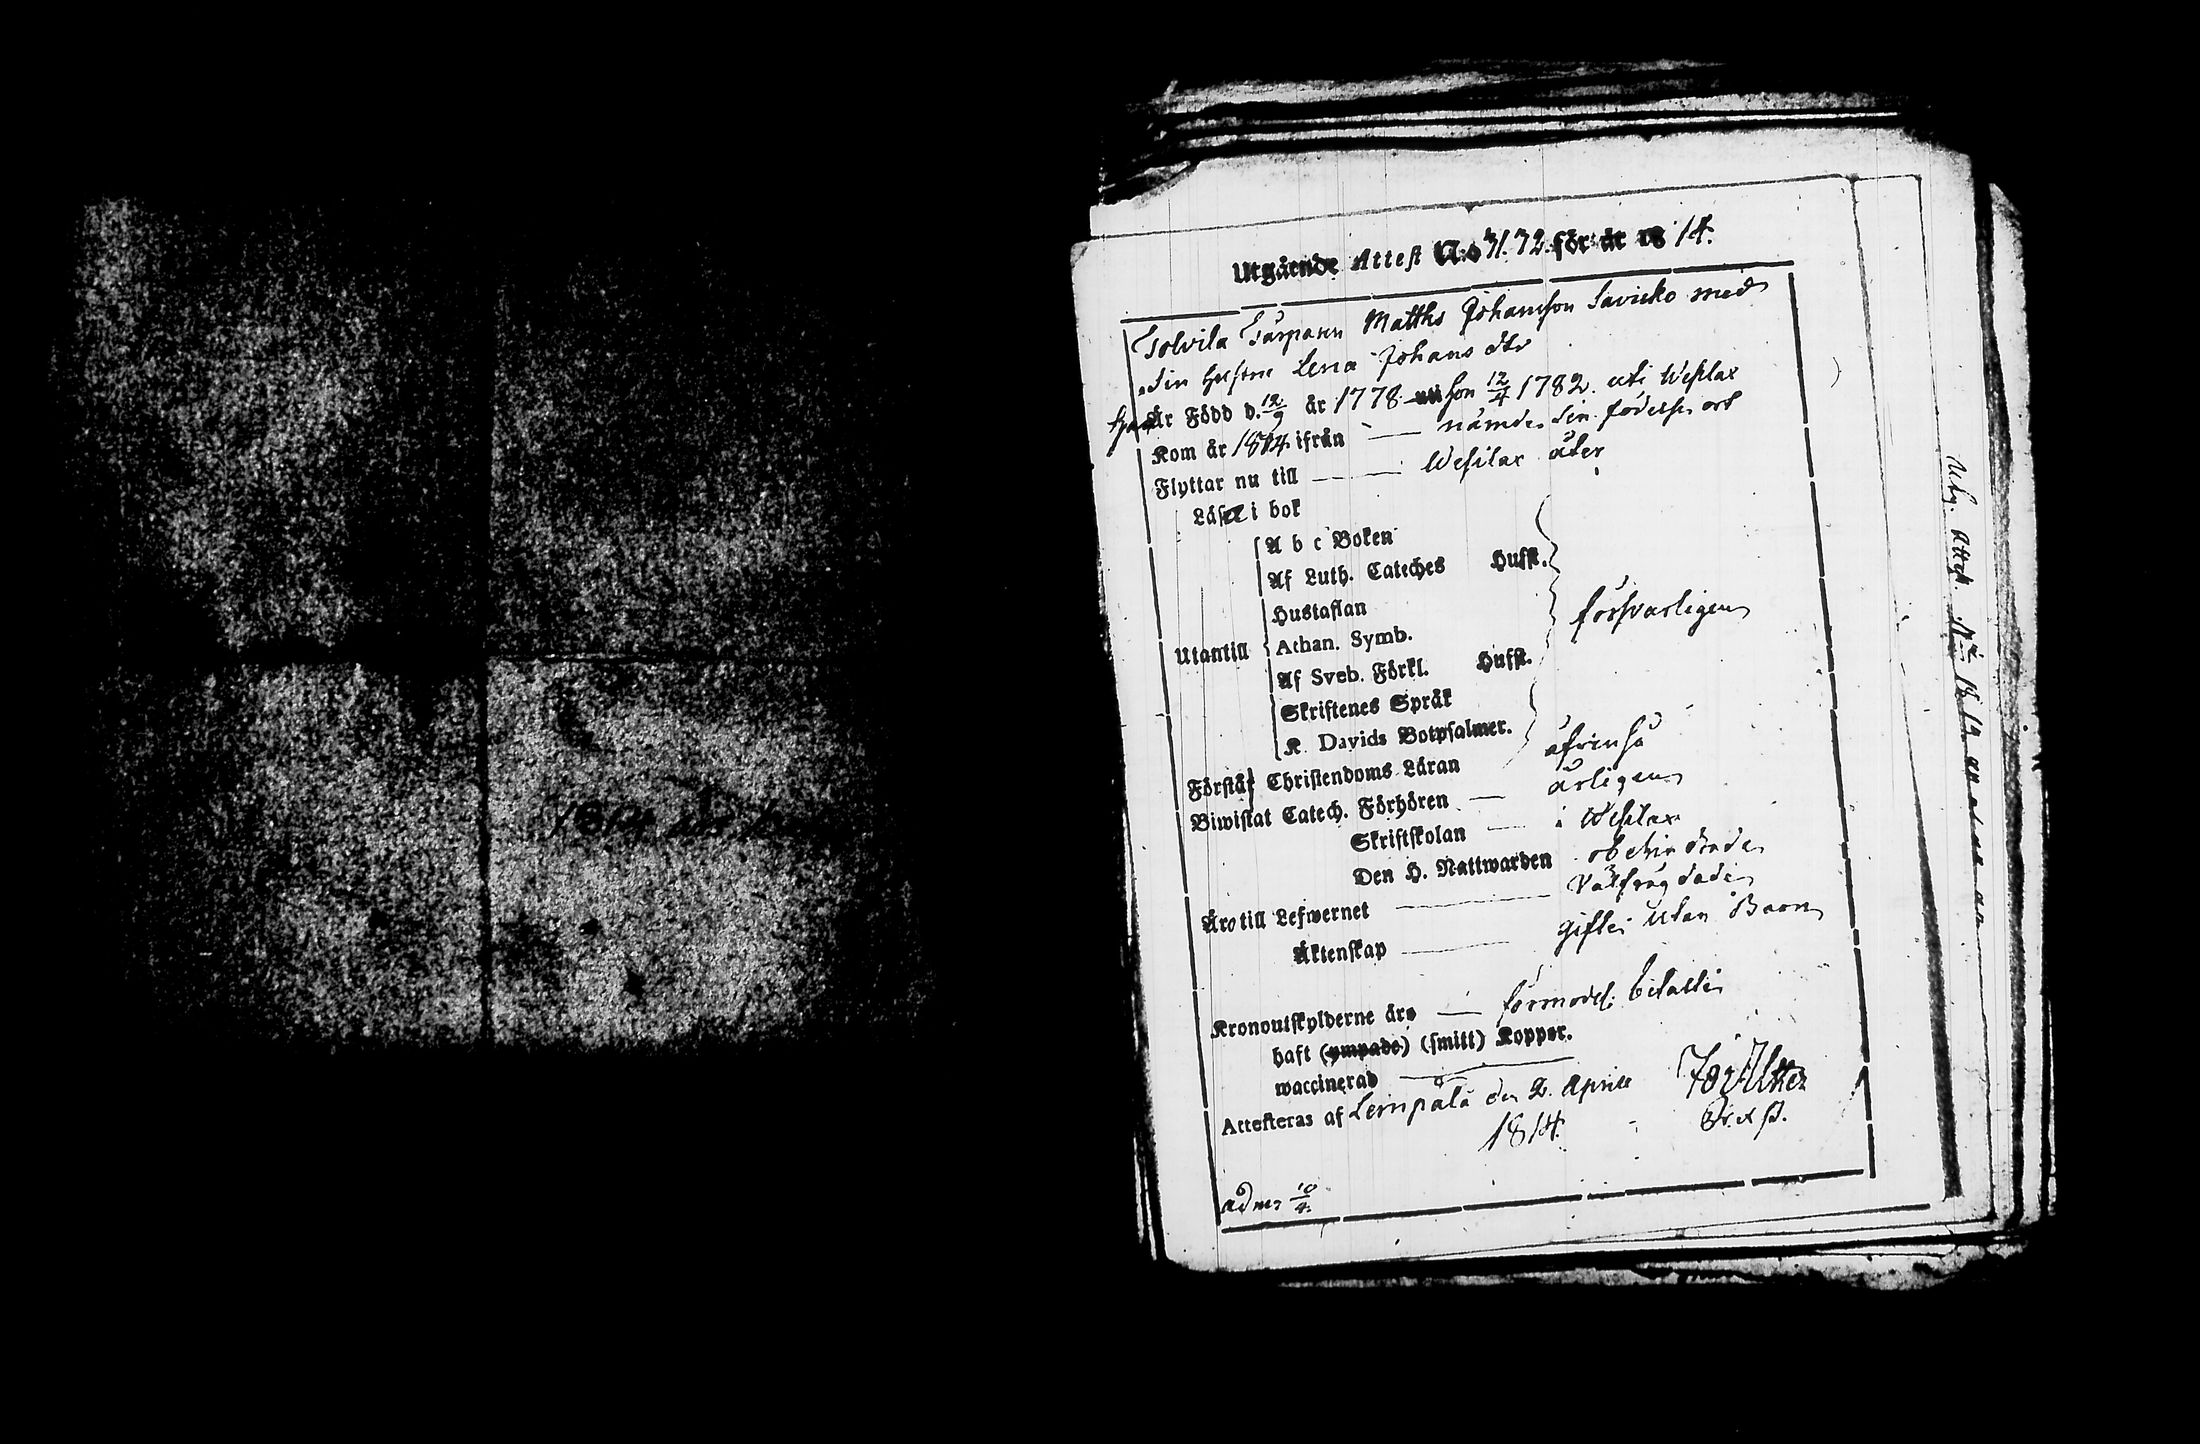 Utgående Attest N:o 71. 72. för år 1814.
Tolvila Torparen Matths Johansson Savicko med
sin hustru Lena Johans dtr
Han Är Född d. 12/9 år 1778 hon 12/4 1782. uti Wesilax
Kom år 1814 ifrån — nämde sin födelse ort
Flyttar nu till — Wesilax åter
Läsa i bok
A b c Boken
Af Luth. Cateches Hufst.
Hustaflan
Utantill Athan. Symb. försvarligen
Af Sveb. Förkl. Hufst.
Skriftenes Språk
K. Davids Botpsalmer.
Förstå Christendoms Läran äfvenså
Biwistat Catech. Förhören — årligen
Skriftskolan — i Wesilax
Den H. Nattwarden obehindrade
Äro till Lefwernet — välfrägdade
Äktenskap — gifte utan Barn
Kronoutskylderne äro — förmodel. betalte
haft (ympade) (smitt) Koppor.
waccinerad —
Attesteras af Lempälä den 2. Aprill
1814.
adm. 10/4.
Utg. Attest.